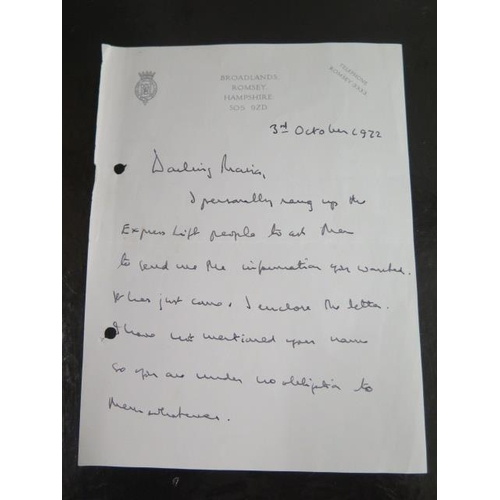 BROADLANDS,
ROMSEY,
HAMPSHIRE.
SO5 9ZD.
TELEPHONE
ROMSEY
3rd October 1977
Darling Maria,
I personally rang up the
Express Lift people to ask them
to send me the information you wanted.
It has just come & I enclose the letter.
I have not mentioned your name
so you are under no obligation to
them whatever.